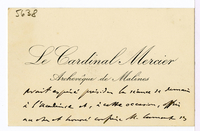 5638
Le Cardinal Mercier
Archevêque de Malines
avait espéré présider la séance de demain
à l'Académie et, à cette occasion, offrir
au et honoré confrère M.